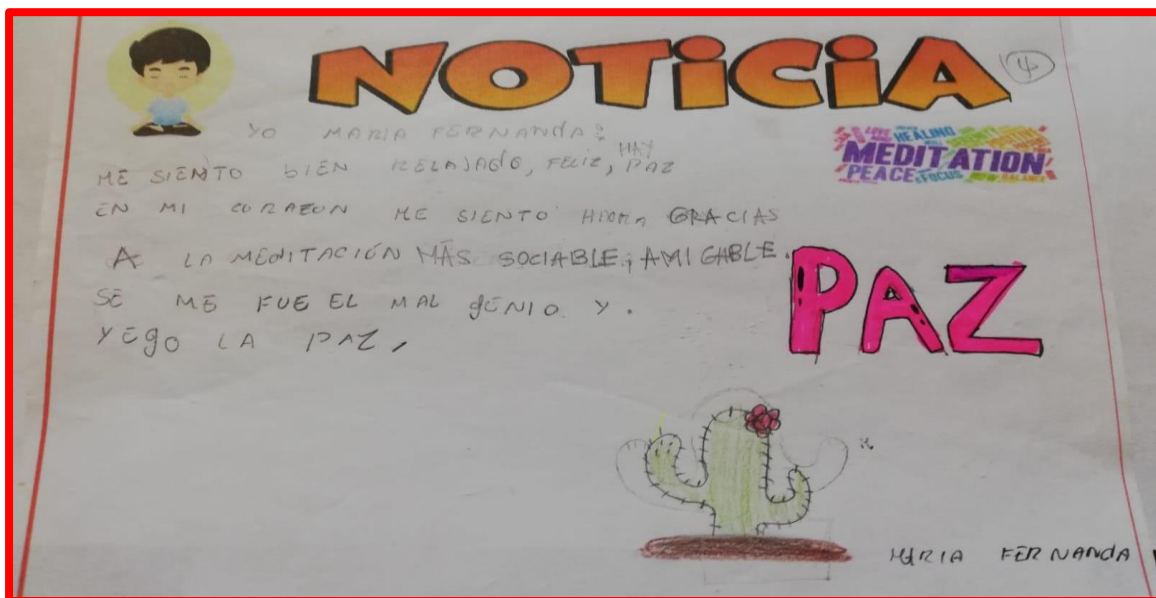 NOTiCiA
4
YO MARIA FERNANDA:
HAY
ME SIENTO bIEN RELAJADO, FELIZ, PAZ
EN MI CORAZON ME SIENTO GRACIAS
A LA MEDITACIÓN MÁS SOCIABLE, AMIGABLE.
SE ME FUE EL MAL gENIO Y.
YEgO LA PAZ,
LOVE HEALING
MEDITATION
PEACE FOCUS NOW BALANCE
PAZ
MARIA FERNANDA